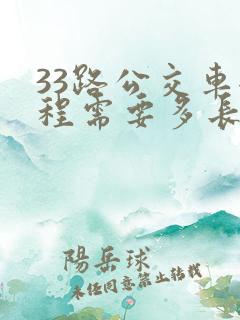 33路公交車
程需要多長
陽岳球
未任同意禁止转载